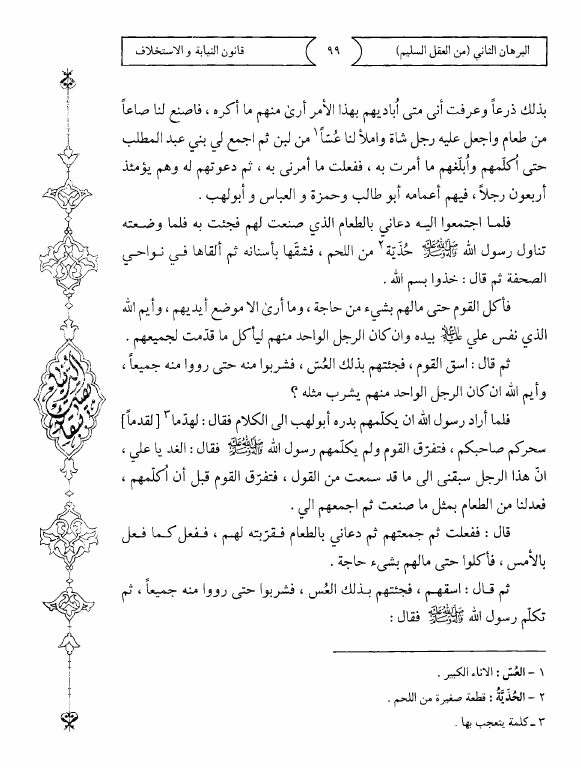 البرهان الثاني (من العقل السليم)
٩٩
قانون النيابة و الاستخلاف
بذلك ذرعاً وعرفت أنى متى اُباديهم بهذا الأمر أرىٰ منهم ما أكره ، فاصنع لنا صاعاً
من طعام واجعل عليه رجل شاة واملأ لنا عُسّاً١ من لبن ثم اجمع لي بني عبد المطلب
حتى اُكلّمهم واُبلّغهم ما أمرت به ، ففعلت ما أمرنى به ، ثم دعوتهم له وهم يؤمئذ
أربعون رجلاً ، فيهم أعمامه أبو طالب وحمزة و العباس و أبولهب .
فلمـا اجتمعوا اليـه دعاني بالطعام الذي صنعت لهم فجئت به فلما وضـعته
تناول رسول الله ﷺ حُذَيّة٢ من اللحم ، فشقّها بأسنانه ثم ألقاها فـي نـواحـي
الصحفة ثم قال : خذوا بسم الله .
فأكل القوم حتى مالهم بشيء من حاجة ، وما أرىٰ الا موضع أيديهم ، وأيم الله
الذي نفس علي بيده وان كان الرجل الواحد منهم ليأكل ما قدّمت لجميعهم .
ثم قال : اسق القوم ، فجئتهم بذلك العُسّ ، فشربوا منه حتى رووا منه جميعاً ،
وأيم الله ان كان الرجل الواحد منهم يشرب مثله ؟
فلما أراد رسول الله ان يكلّمهم بدره أبولهب الى الكلام فقال : لهدّما٣ [لقدماً]
سحركم صاحبكم ، فتفرّق القوم ولم يكلّمهم رسول الله ﷺ فقال : الغد يا علي ،
انّ هذا الرجل سبقنى الى ما قد سمعت من القول ، فتفرّق القوم قبل أن اُكلّمهم ،
فعدلنا من الطعام بمثل ما صنعت ثم اجمعهم الي .
قال : ففعلت ثم جمعتهم ثم دعاني بالطعام فـقرّبته لهـم ، فـفعل كـما فـعل
بالأمس ، فأكلوا حتى مالهم بشىء حاجة .
ثم قـال : اسقهـم ، فجئتهم بـذلك العُس ، فشربوا حتى رووا منه جميعاً ، ثم
تكلّم رسول الله ﷺ فقال :
١ - العُسّ : الاناء الكبير .
٢ - الحُذَيَّةُ : قطعة صغيرة من اللحم .
٣ ـ كلمة يتعجب بها .